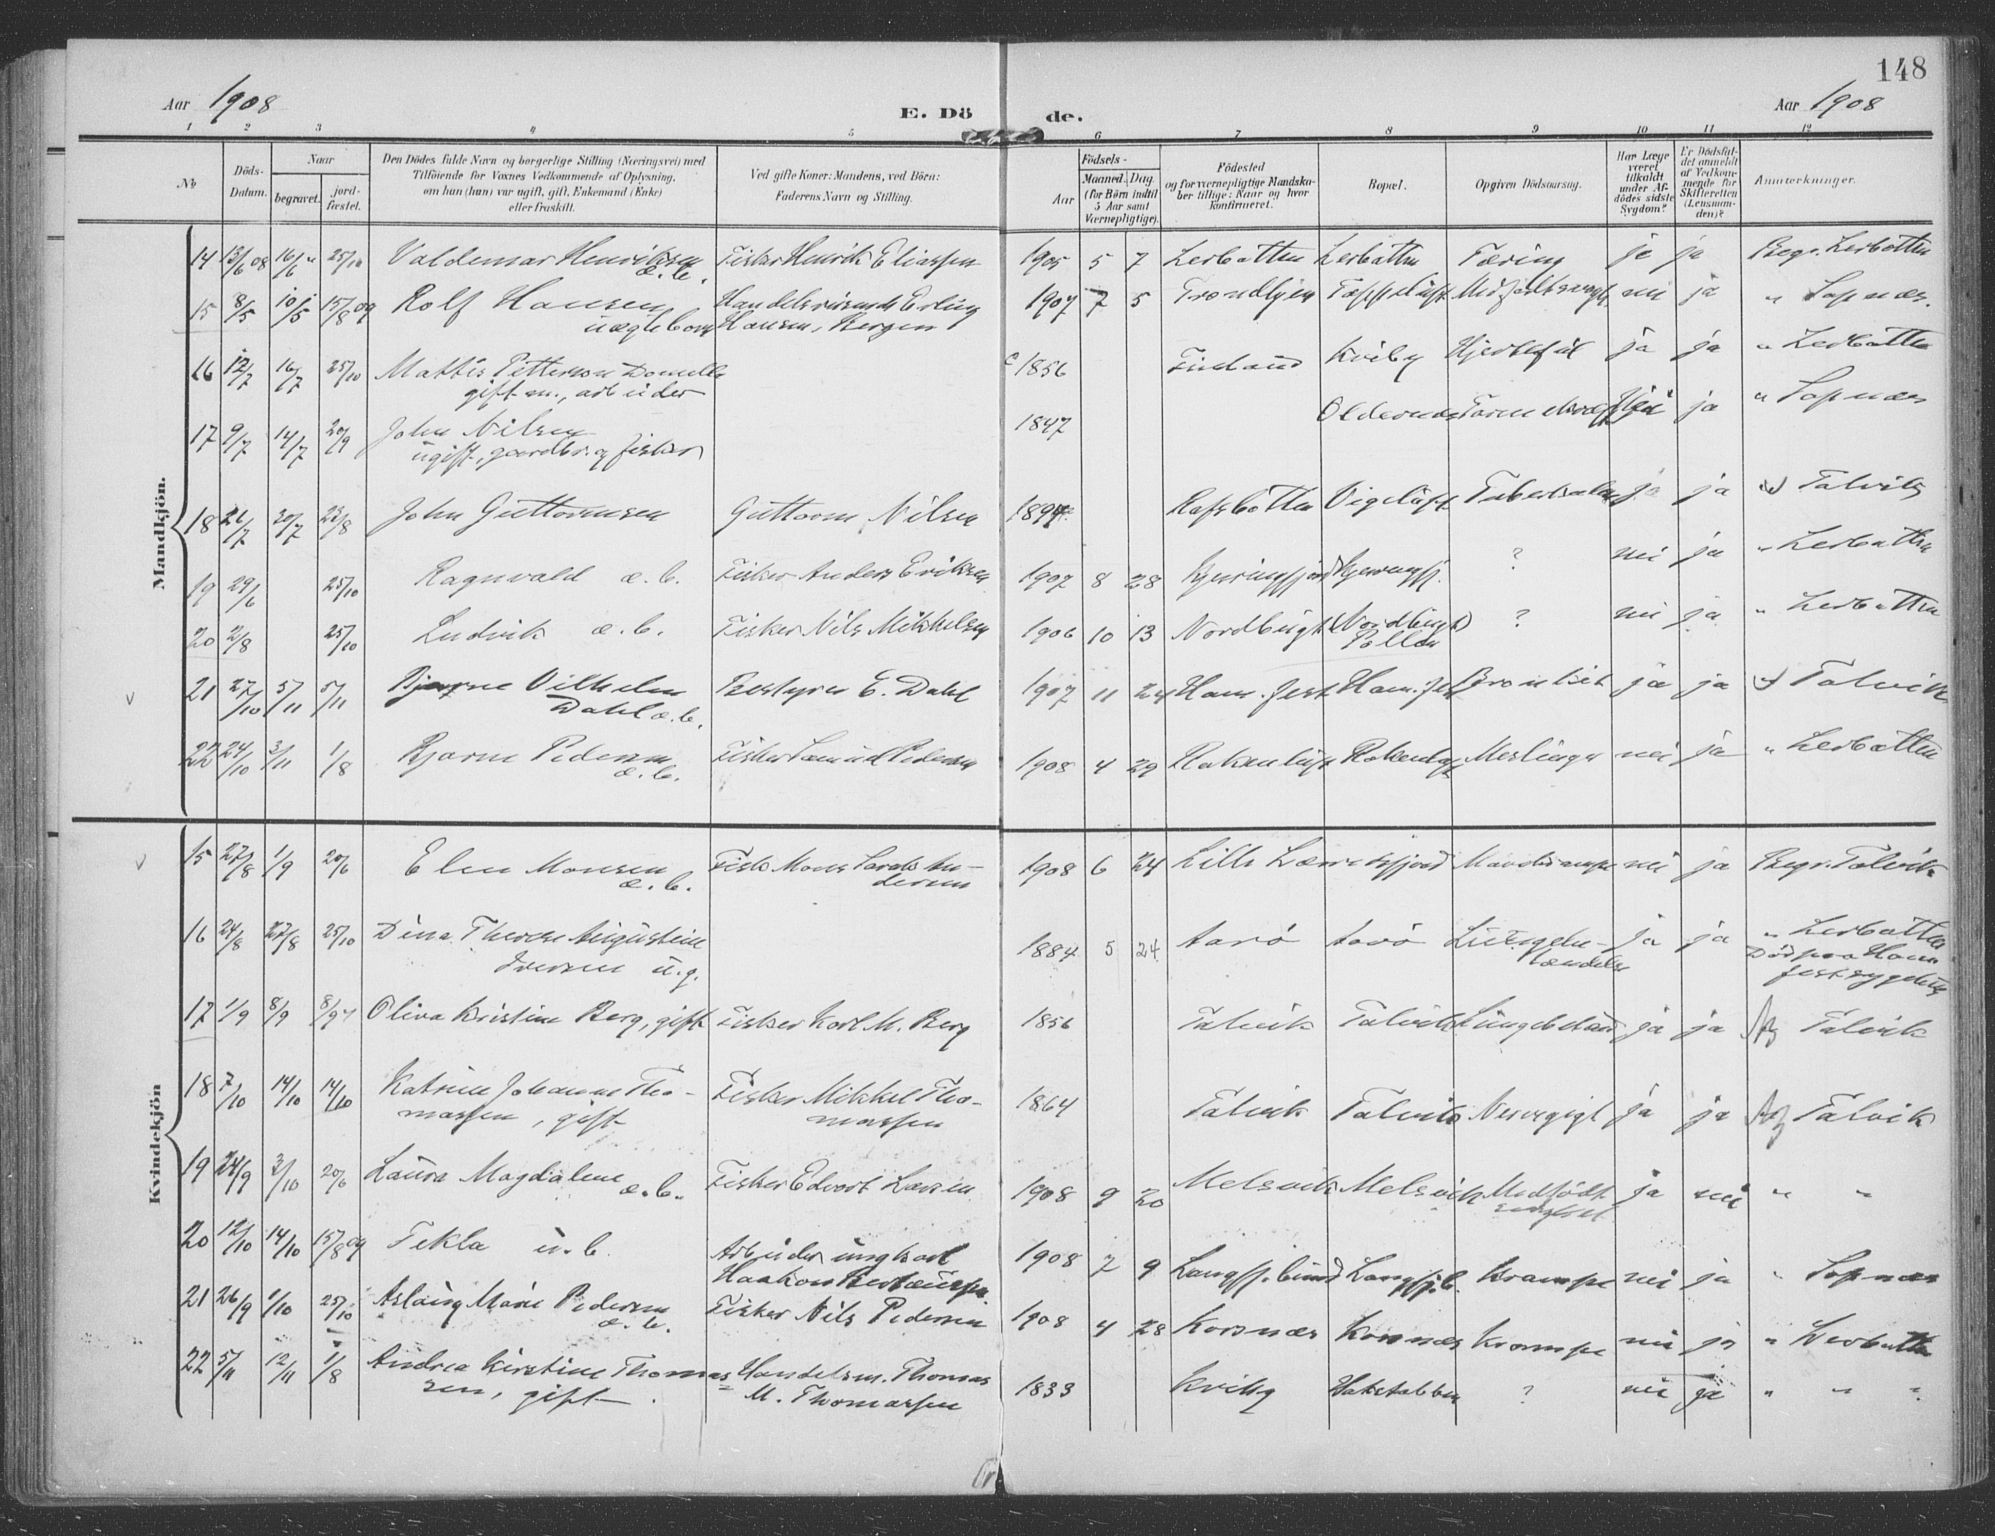 148
Aar 1908
E. Dö de.
Aar 1908
1 2 3 4 5 6 7 8 9 10 11 12
No
Döds-
Datum.
Naar
begravet.
jord-
fæstet.
Den Dödes fulde Navn og borgerlige Stilling (Næringsvei) med
Tilföiende for Voxnes Vedkommende af Oplysning,
om han (hun) var ugift, gift, Enkemand (Enke)
eller fraskilt.
Ved gifte Koner: Mandens, ved Börn:
Faderens Navn og Stilling.
Födsels-
Aar
Maaned. Dag.
(for Börn indtil
5 Aar samt
Værnepligtige).
Födested
og for værnepligtige Mandska-
ber tillige: Naar og hvor
konfirmeret.
Bopæl.
Opgiven Dödsaarsag.
Har Læge
været
tilkaldt
under Af-
dödes sidste
Sygdom?
Er Dödsfal-
det anmeldt
af Vedkom-
mende for
Skifteretten
(Lensman-
den)?
Anmærkninger.
Mandkjön.
14 13/6 08 16/6 " 25/10 Valdemar Henriksen Fisker Henrik Eliassen 1905 5 7 Lerbotten Lerbotten Tæring ja ja Begr. Lerbotten
æ. b.
15 8/5 10/5 15/8 09 Rolf Hansen Handelsreisende Erling 1907 7 5 Trondhjem nei ja " Sopnæs.
uægte barn Hansen, Bergen
16 12/7 16/7 25/10 Mattis Pettersen 1856 Finland Kviby Hjertefeil ja ja " Lerbotten
gift m., arbeider
17 9/7 14/7 20/9 John Nilsen 1847 Oldernæs ja ja " Sopnæs
ugift, gaardbr. og fisker
18 26/7 30/7 23/8 John Guttormsen Guttorm Nilsen Rafsbotten ja ja Talvik
19 29/6 25/10 Ragnvald æ. b. Fisker Anders Eriksen 1907 8 28 Kjerringfjord Kjerringfj. ? nei ja " Lerbotten
20 2/8 25/10 Ludvik æ. b. Fisker Nils Mikkelsen 1906 10 13 Nordbugt (Nordbugt) ? nei ja " Lerbotten
Pollen
21 27/10 5/11 5/11 Bjarne Vilhelm Bestyrer E. Dahl 1907 11 24 Ham. fest Ham. fest Bronkit ja ja Talvik
Dahl æ. b.
22 24/10 3/11 1/8 Bjarne Pedersen Fisker Pedersen 1908 4 29 Meslinger nei ja " Lerbotten
æ. b.
Kvindekjön
15 27/8 1/9 20/6 Elen Monsen Fisk. Mons An- 1908 6 24 Lille Lærredsfjord nei ja Begr. Talvik
æ. b. dersen
16 24/8 27/8 25/10 Dina Therese Augustine 1884 5 24 Aarö Aarö Lungebe- ja ja " Lerbotten
Iversen u. g. tændelse Död paa Ham
fest sygehus
17 1/9 8/9 8/9 Oliva Kristine Berg, gift Fisker Karl M. Berg 1856 Talvik Talvik ja ja Talvik
18 7/10 14/10 14/10 Katrine Johanne Tho- Fisker Mikkel Tho- 1864 Talvik Talvik Nervegigt ja ja Talvik
massen, gift massen
19 24/9 3/10 20/6 Laura Magdalene Fisker Edvart Larsen 1908 9 20 Melsvik Melsvik Medfödt ja nei " "
æ. b.
20 12/10 14/10 15/8 09 Tekla u. b. Arbeider ungkarl 1908 7 9 Langfj. bund Langfj. b. Krampe nei ja " Sopnæs
Haakon
21 26/9 1/10 25/10 Aslaug Marie Pedersen Fisker Nils Pedersen 1908 4 28 Korsnæs Korsnæs Krampe nei ja " Lerbotten
æ. b.
22 5/11 12/11 1/8 Andrea Kirstine Thomas Handelsm. Thomas 1833 Kviby Hakstabben ? nei ja " " "
sen, gift M. Thomassen